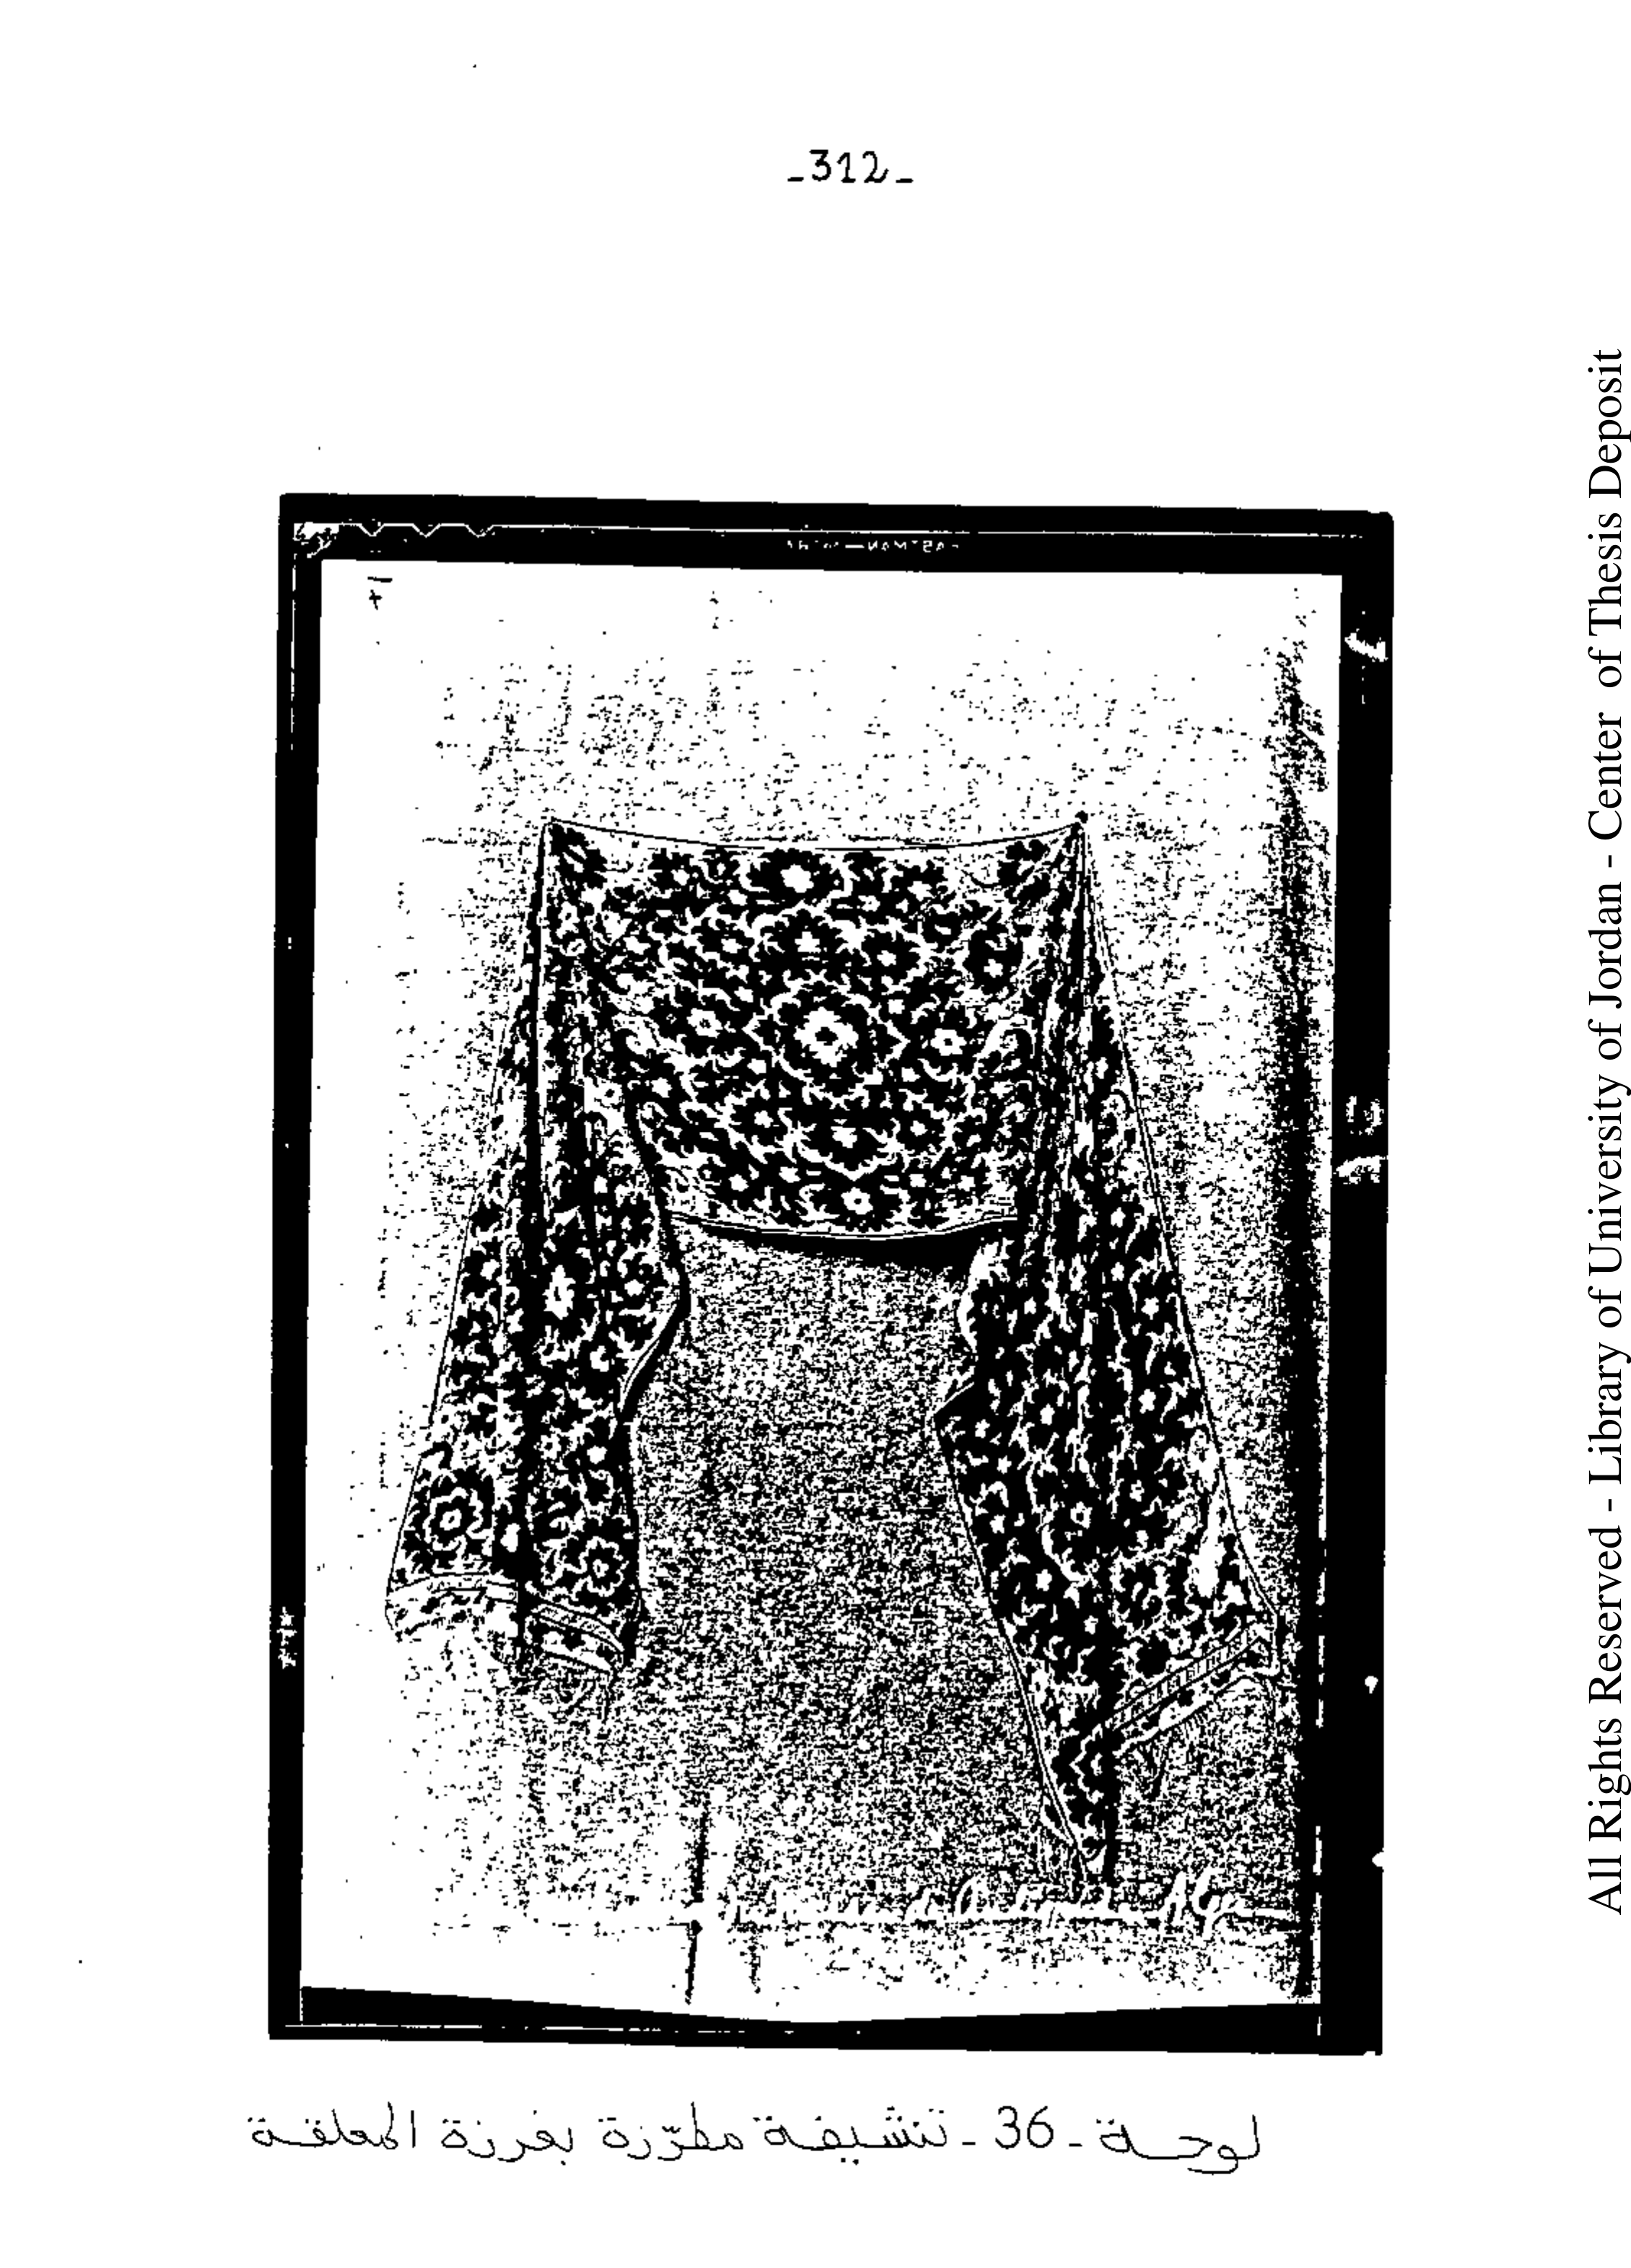 -312-
لوحة - 36 - تنشيفة مطرّزة بغرزة المعلقة
All Rights Reserved - Library of University of Jordan - Center of Thesis Deposit